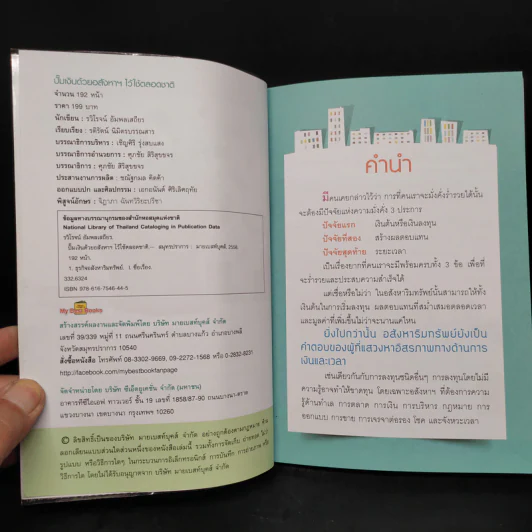 ปั้นเงินด้วยอสังหาฯ ไว้ใช้ตลอดชาติ
จำนวน 192 หน้า
ราคา 199 บาท
นักเขียน : รวิโรจน์ อัมพลเสถียร
เรียบเรียง : รติรัตน์ นิมิตรบรรณสาร
บรรณาธิการบริหาร : เชิญศิริ รุ่งสบแสง
บรรณาธิการอำนวยการ : ศุภชัย สิริสุขขจร
บรรณาธิการ : ศุภชัย สิริสุขขจร
ประสานงานการผลิต : ชณัฐกมล คิดค้า
ออกแบบปก และศิลปกรรม : เอกอนันต์ ศิริเลิศฤทัย
พิสูจน์อักษร : ฐิฏาภา นันทวิริยะปรีชา
ข้อมูลทางบรรณานุกรมของสำนักหอสมุดแห่งชาติ
National Library of Thailand Cataloging in Publication Data
รวิโรจน์ อัมพลเสถียร
ปั้นเงินด้วยอสังหาฯ ไว้ใช้ตลอดชาติ.-- สมุทรปราการ : มายเบสท์บุ๊คส์, 2556
192 หน้า.
1. ธุรกิจอสังหาริมทรัพย์. I. ชื่อเรื่อง.
332.6324
ISBN 978-616-7546-44-5
My Best Books
สร้างสรรค์ผลงานและจัดพิมพ์โดย บริษัท มายเบสท์บุ๊คส์ จำกัด
เลขที่ 39/339 หมู่ที่ 11 ถนนศรีนครินทร์ ตำบลบางแก้ว อำเภอบางพลี
จังหวัดสมุทรปราการ 10540
สั่งซื้อหนังสือ โทรศัพท์ 08-3302-9669, 09-2272-1568 หรือ 0-2632-8231
http://facebook.com/mybestbookfanpage
จัดจำหน่ายโดย บริษัท ซีเอ็ดยูเคชั่น จำกัด (มหาชน)
อาคารทีซีไอเอฟ ทาวเวอร์ ชั้น 19 เลขที่ 1858/87-90 ถนนบางนา-ตราด
แขวงบางนา เขตบางนา กรุงเทพฯ 10260
© ลิขสิทธิ์เป็นของบริษัท มายเบสท์บุ๊คส์ จำกัด อย่างถูกต้องตามกฎหมาย ห้าม
ลอกเลียนแบบส่วนใดส่วนหนึ่งของหนังสือเล่มนี้ รวมทั้งการจัดเก็บ ถ่ายทอด ไม่ว่า
รูปแบบ หรือวิธีการใดๆ ในกระบวนการอิเล็กทรอนิกส์ การบันทึก การถ่ายภาพ หรือ
วิธีการใด โดยไม่ได้รับอนุญาตจาก บริษัท มายเบสท์บุ๊คส์ จำกัด
คำนำ
มีคนเคยกล่าวไว้ว่า การที่คนเราจะมั่งคั่งร่ำรวยได้นั้น
จะต้องมีปัจจัยแห่งความมั่งคั่ง 3 ประการ
ปัจจัยแรก เงินต้นหรือเงินลงทุน
ปัจจัยที่สอง สร้างผลตอบแทน
ปัจจัยสุดท้าย ระยะเวลา
เป็นเรื่องยากที่คนเราจะมีพร้อมครบทั้ง 3 ข้อ เพื่อที่
จะร่ำรวยและประสบความสำเร็จได้
แต่เชื่อหรือไม่ว่า ในอสังหาริมทรัพย์นั้นสามารถให้ทั้ง
เงินต้นในการเริ่มลงทุน ผลตอบแทนที่สม่ำเสมอตลอดเวลา
และมูลค่าที่เพิ่มขึ้นไม่ว่าจะนานแค่ไหน
ยิ่งไปกว่านั้น อสังหาริมทรัพย์ยังเป็น
คำตอบของผู้ที่แสวงหาอิสรภาพทางด้านการ
เงินและเวลา
เช่นเดียวกันกับการลงทุนชนิดอื่นๆ การลงทุนโดยไม่มี
ความรู้อาจทำให้ขาดทุน โดยเฉพาะอสังหาฯ ที่ต้องการความ
รู้ด้านทำเล การตลาด การเงิน การบริหาร กฎหมาย การ
ออกแบบ การขาย การเจรจาต่อรอง โชค และจังหวะเวลา